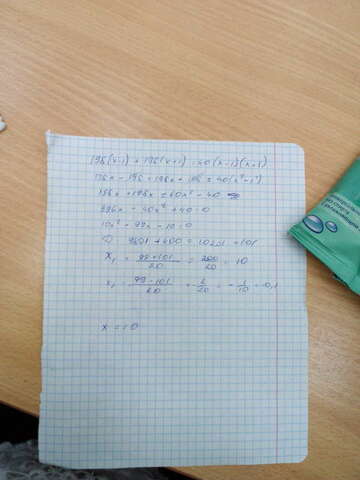 198(x-1) + 198(x+1) = 40(x-1)(x+1)
198x - 198 + 198x + 198 = 40(x²-1²)
198x + 198x = 40x² - 40
396x - 40x² + 40 = 0
10x² - 99x - 10 = 0
D = 9801 + 400 = 10201 = 101
x₁ = 99+101/20 = 200/20 = 10
x₂ = 99-101/20 = -2/20 = -1/10 = -0,1
x = 10